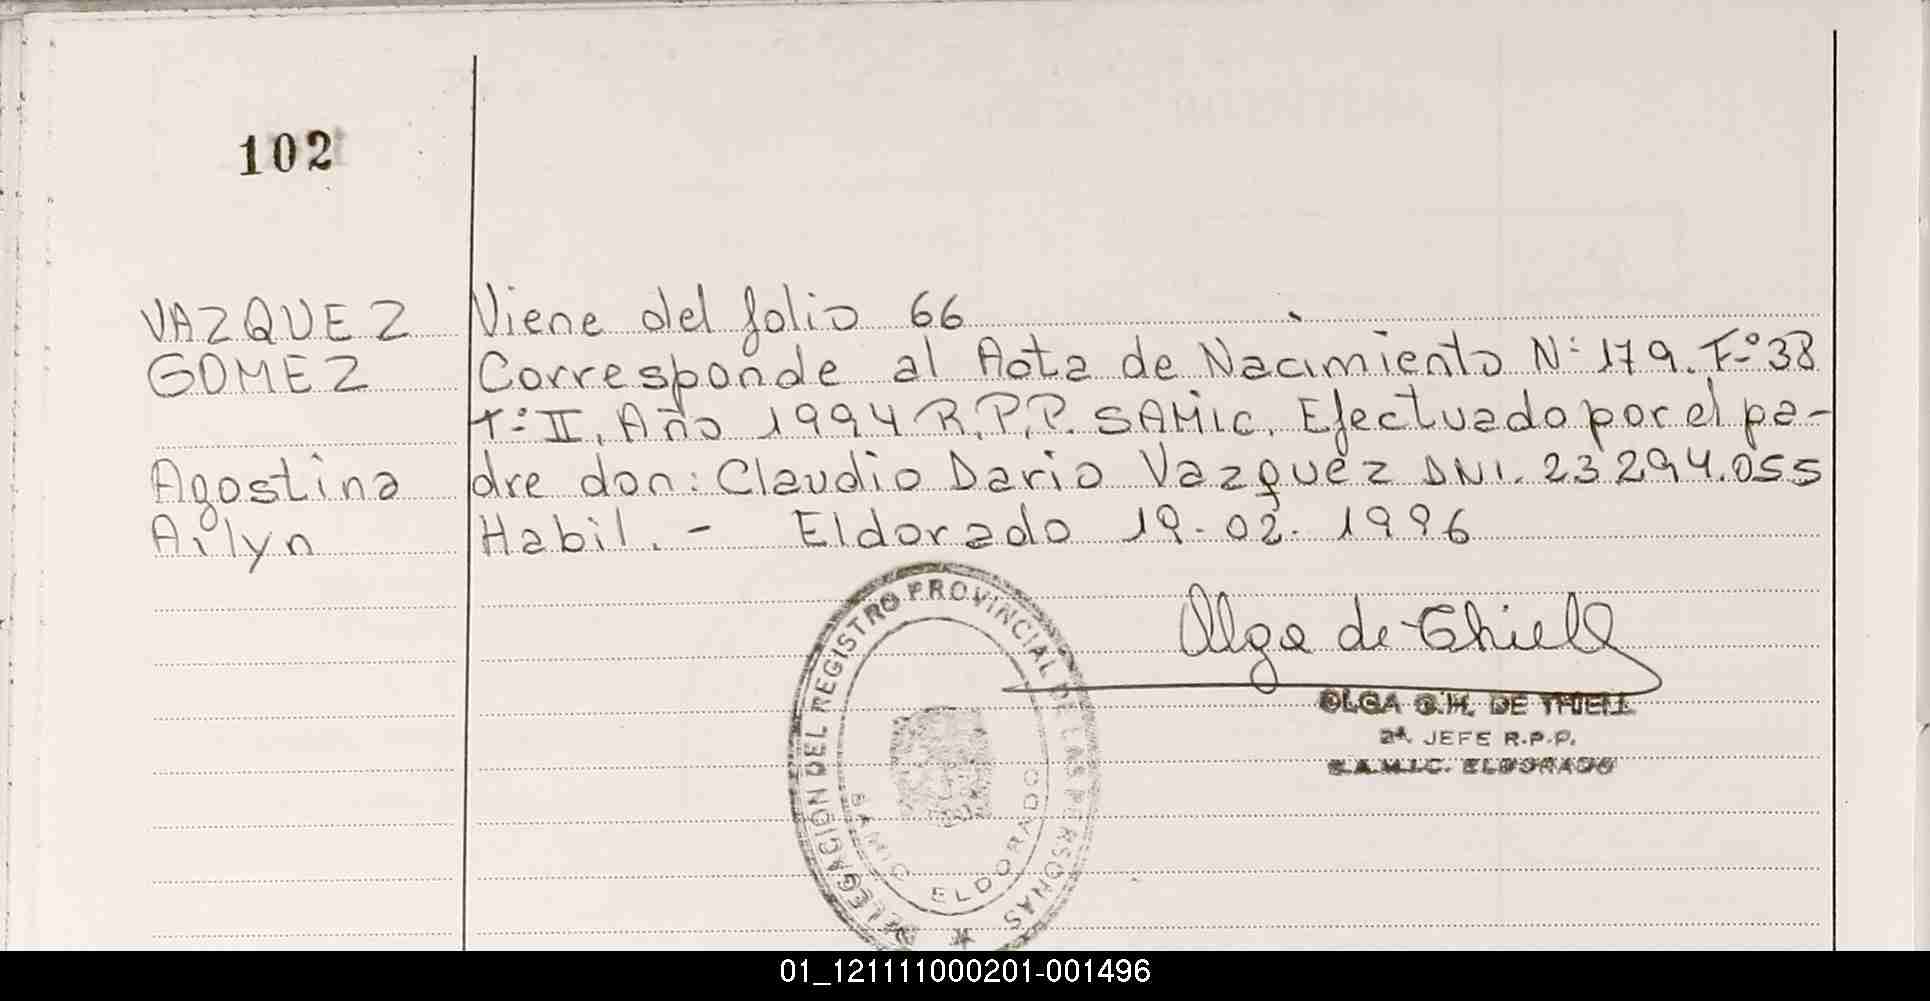 102
VAZQUEZ
GOMEZ
Agostina
Ailyn
Viene del folio 66
Corresponde al Acta de Nacimiento Nº 179. Fº 38
Tº II, Año 1994 R.P.P. SAMIC. Efectuado por el pa-
dre don: Claudio Dario Vazquez DNI. 23294.055
Habil. - Eldorado 19-02-1996
Olga de Thiell
OLGA G.H. DE THIELL
2ª JEFE R.P.P.
S.A.M.I.C. ELDORADO
DELEGACION DEL REGISTRO PROVINCIAL DE LAS PERSONAS
SAMIC ELDORADO
01_121111000201-001496